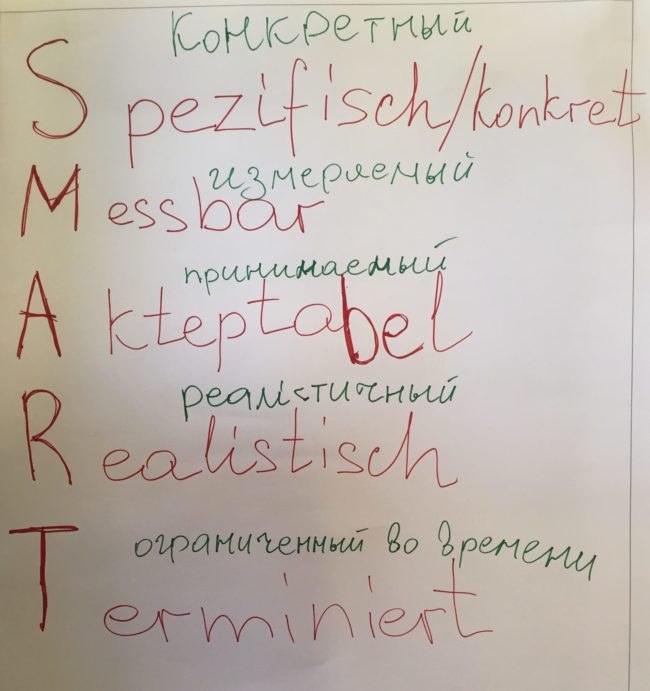 конкретный
Spezifisch/konkret
измеряемый
Messbar
принимаемый
Akteptabel
реалистичный
Realistisch
ограниченный во времени
Terminiert